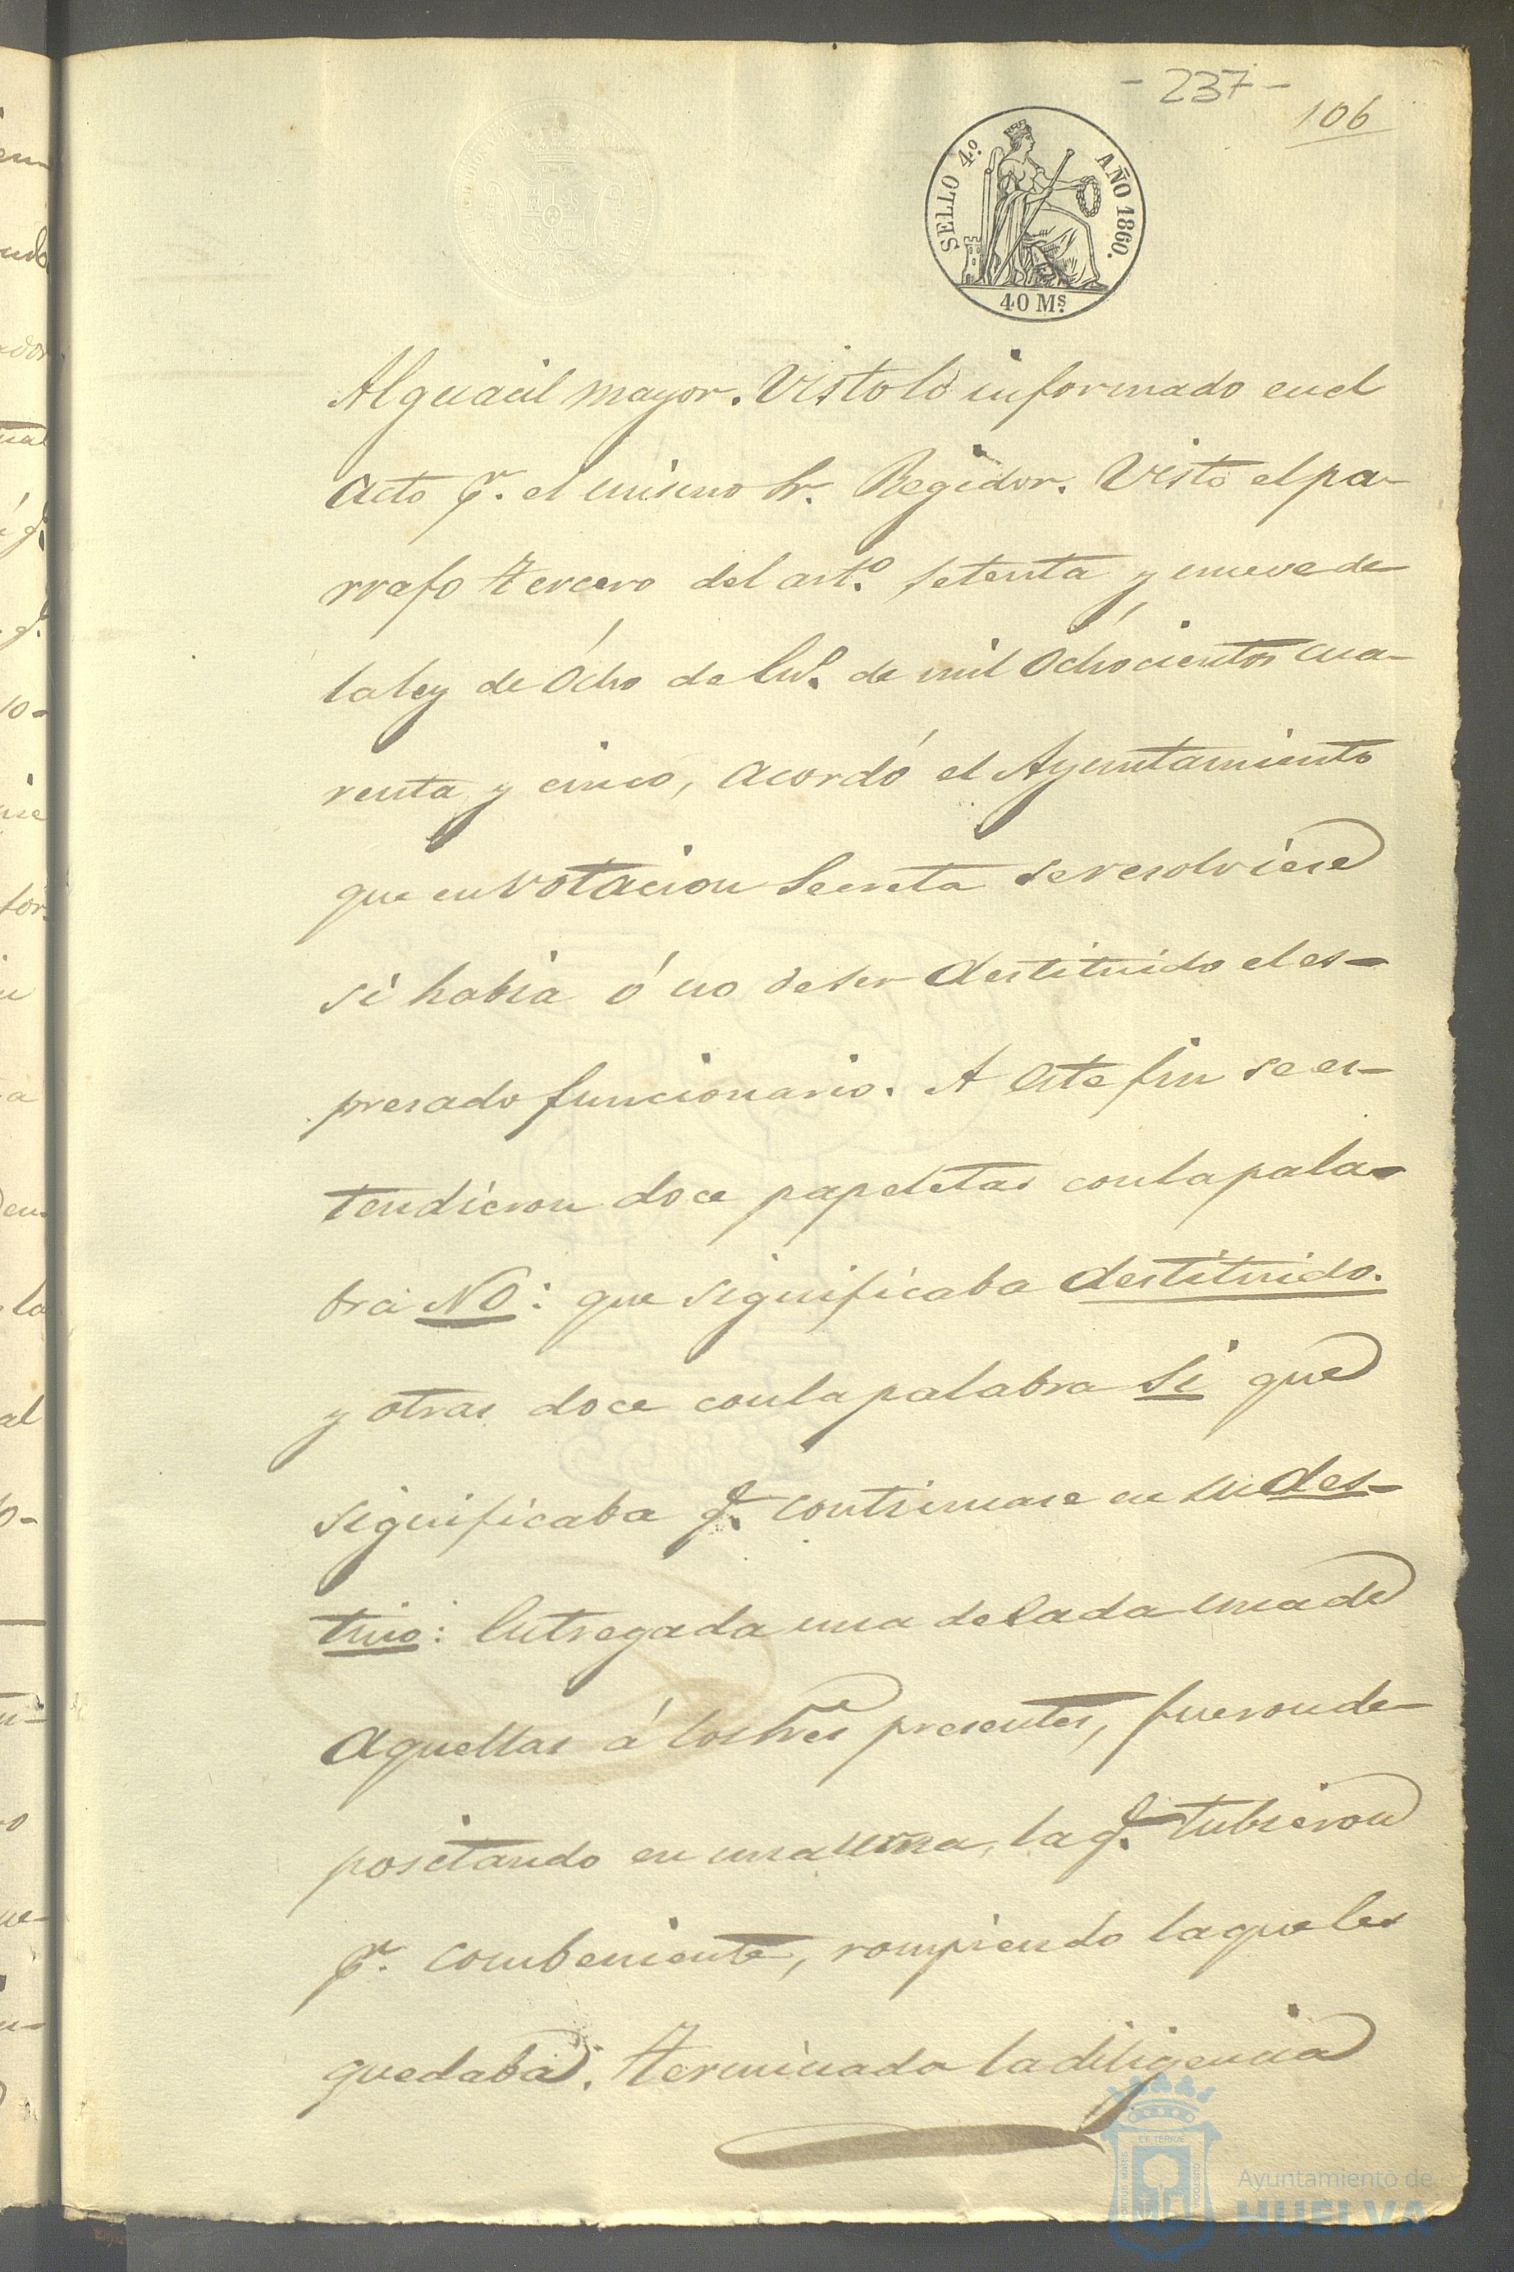 - 237 -
106
SELLO 4.º AÑO 1860.
40 Ms.
Alguacil mayor. Visto lo informado en el
acto pr. el mismo Sr. Regidor. Visto el pa-
rrafo tercero del art.º setenta y nueve de
la ley de ócho de En.º de mil ochocientos cua-
renta y cinco, acordó el Ayuntamiento
que en votacion Secreta se resolviese
si habia ó no de ser destituido el es-
presado funcionario. A este fin se es-
tendieron doce papeletas con la pala-
bra NO: que significaba destituido.
y otras doce con la palabra Si que
significaba q. continuase en su des-
tino: Entregada una de cada una de
aquellas á los Sres presentes, fueron de-
positando en una urna, la q. tubieron
pr. combeniente, rompiendo la que les
quedaba. Terminada la diligencia
Ayuntamiento de
HUELVA